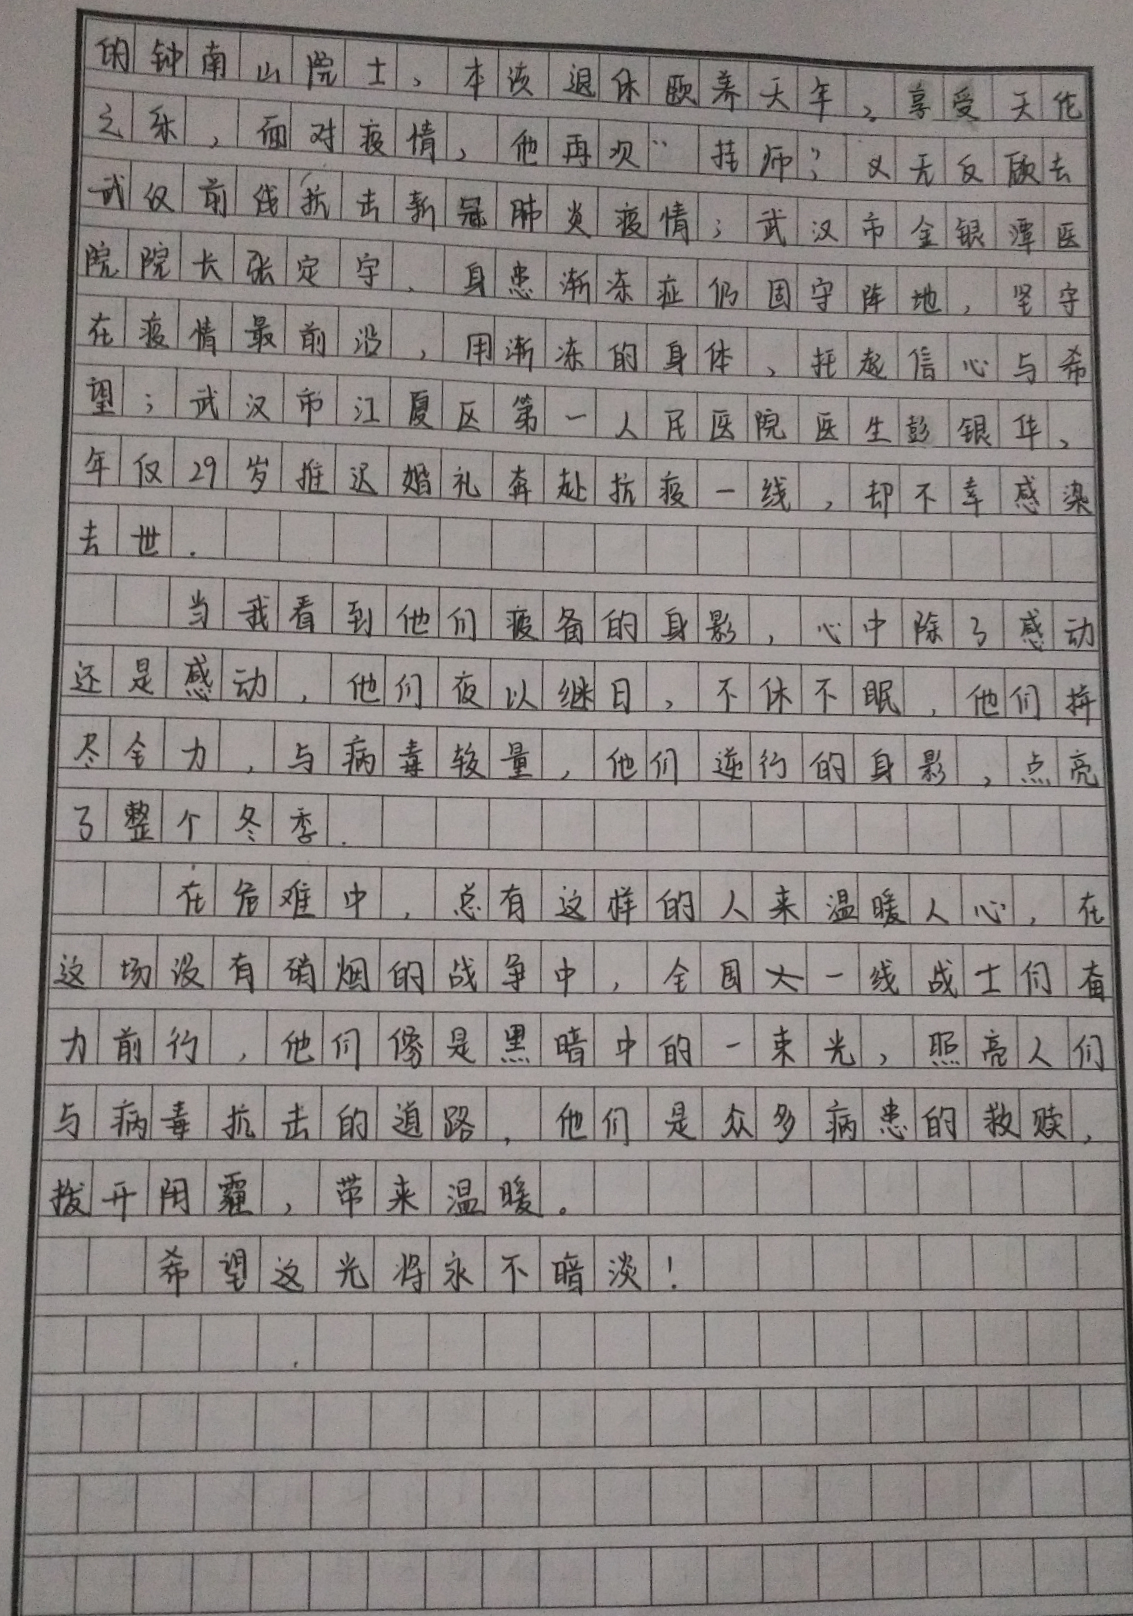 的钟南山院士，本该退休颐养天年，享受天伦
之乐，面对疫情，他再次“挂帅”，义无反顾去
武汉前线抗击新冠肺炎疫情；武汉市金银潭医
院院长张定宇，身患渐冻症仍固守阵地，坚守
在疫情最前沿，用渐冻的身体，托起信心与希
望；武汉市江夏区第一人民医院医生彭银华，
年仅29岁推迟婚礼奔赴抗疫一线，却不幸感染
去世．
当我看到他们疲备的身影，心中除了感动
还是感动，他们夜以继日，不休不眠，他们拼
尽全力，与病毒较量，他们逆行的身影，点亮
了整个冬季．
在危难中，总有这样的人来温暖人心，在
这场没有硝烟的战争中，全国一线战士们奋
力前行，他们像是黑暗中的一束光，照亮人们
与病毒抗击的道路，他们是众多病患的救赎，
拨开阴霾，带来温暖。
希望这光将永不暗淡！